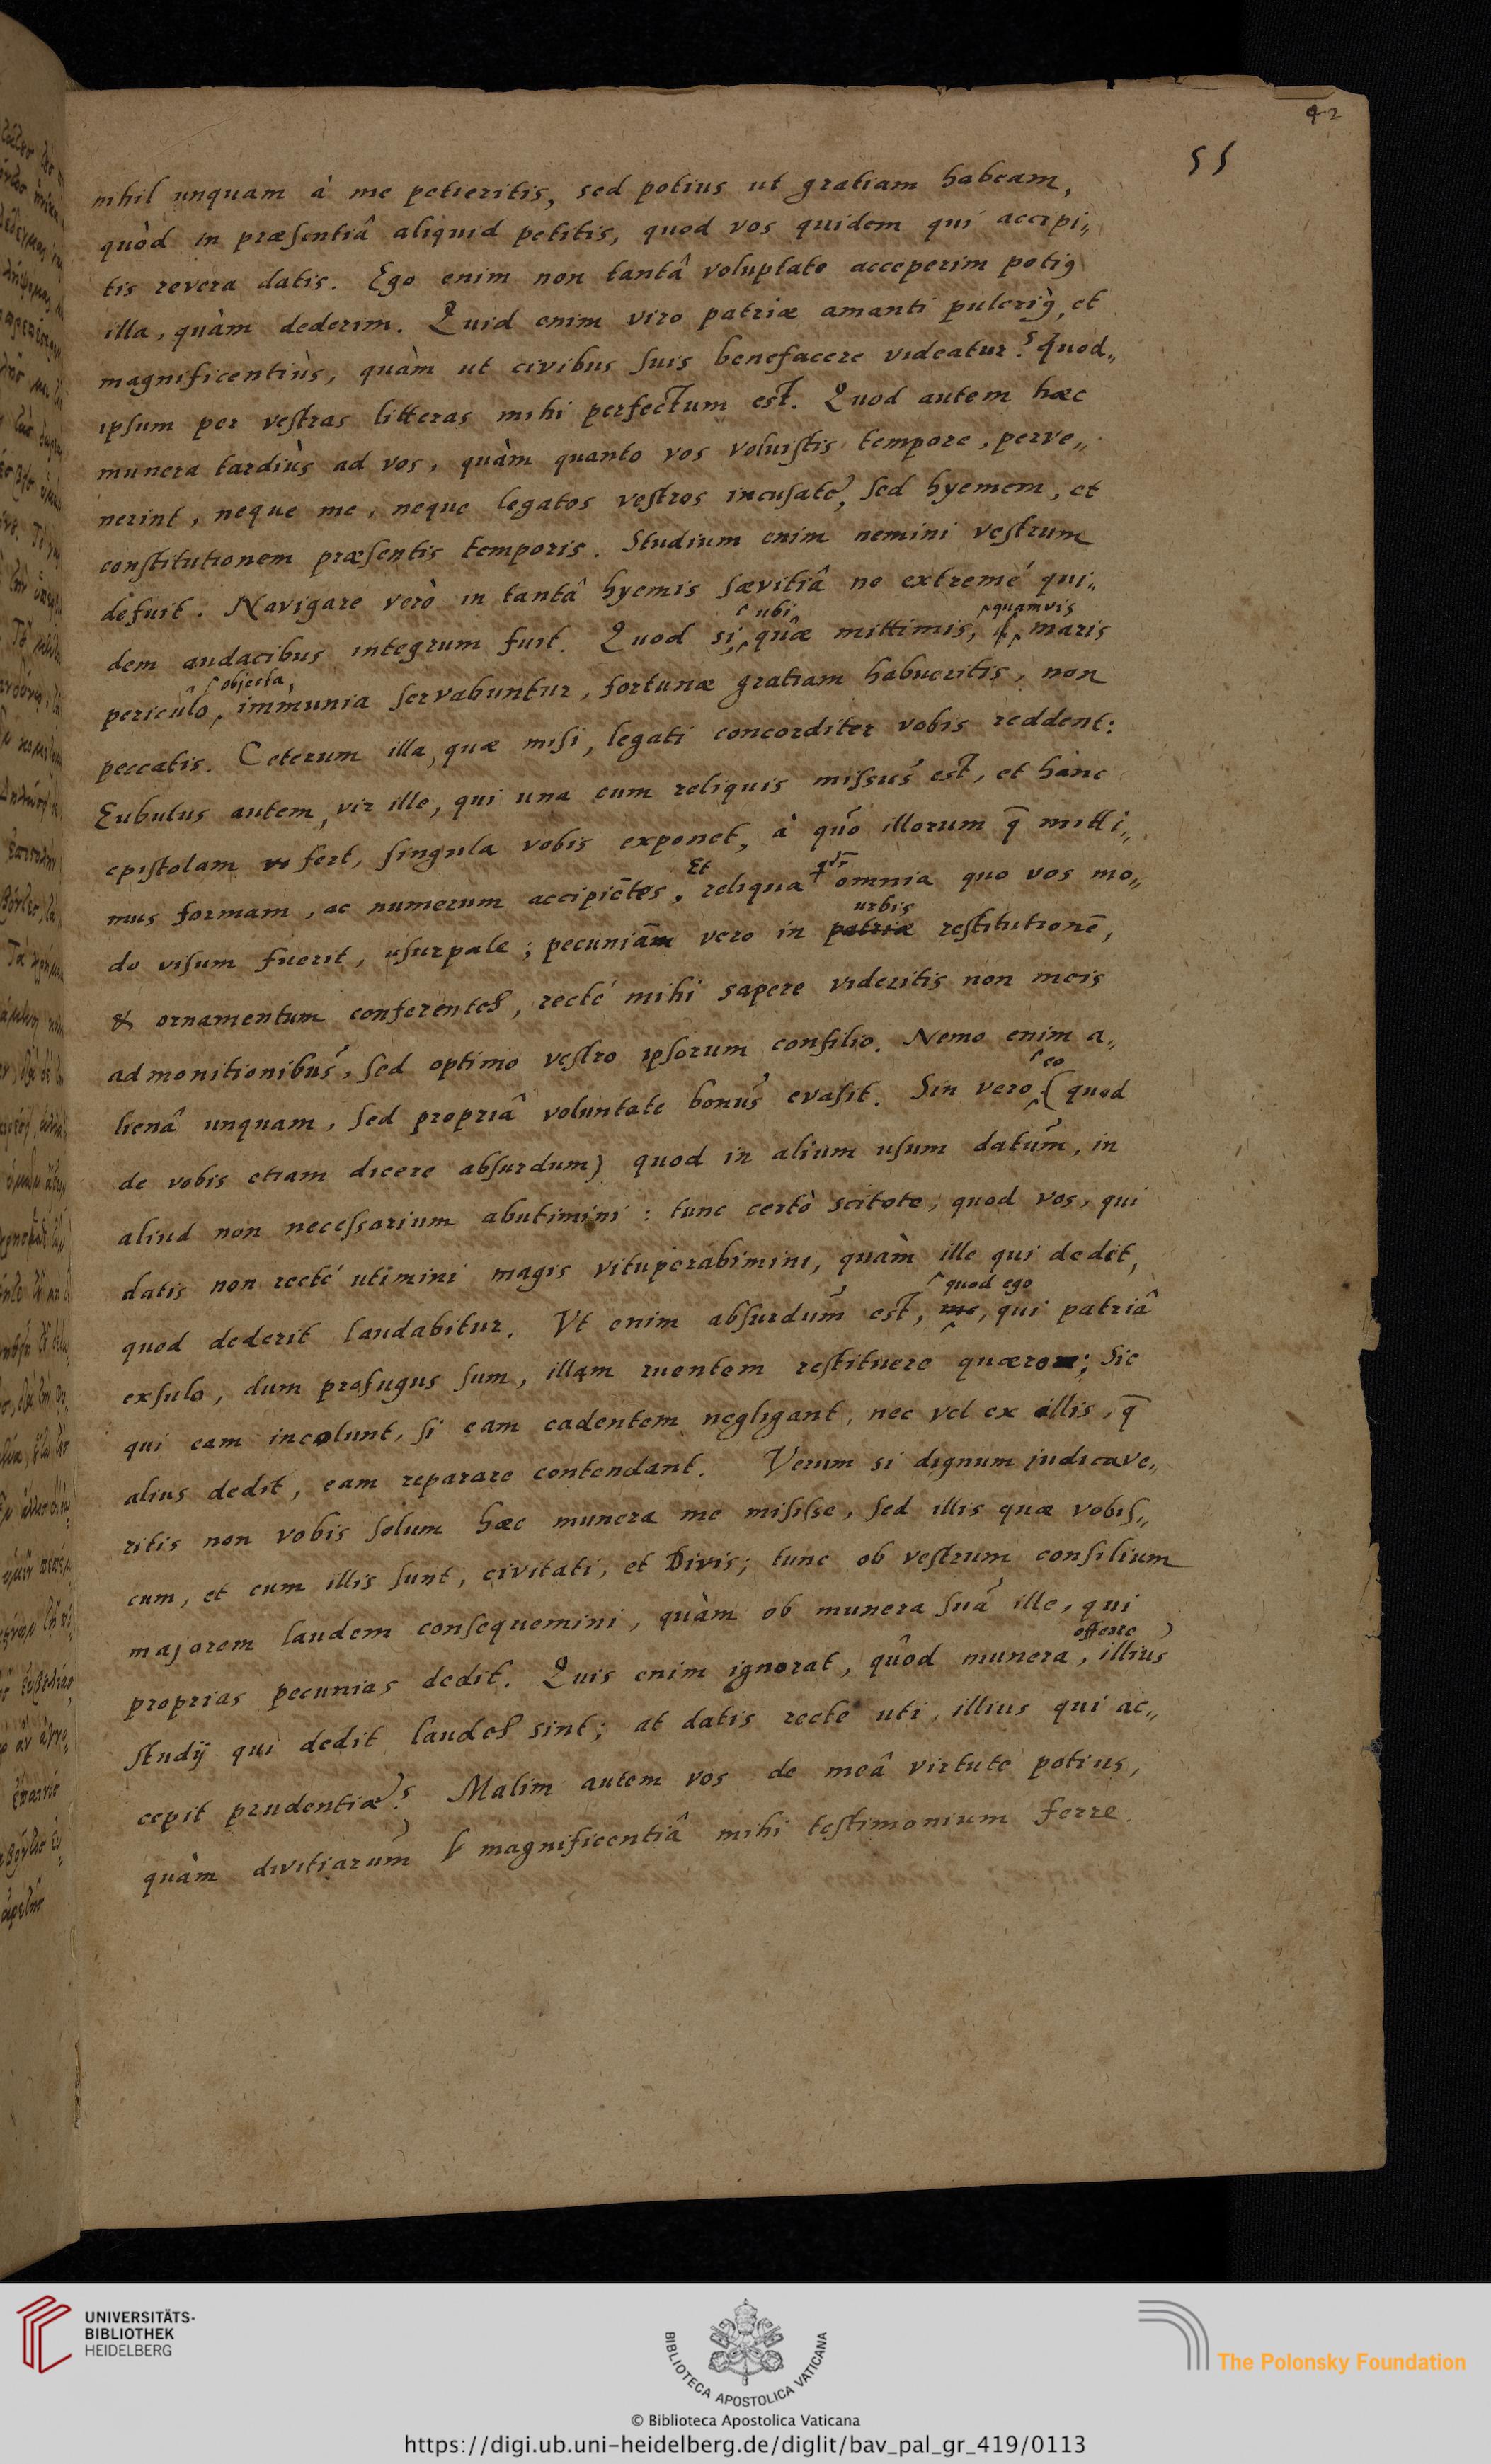 42
55
nihil unquam à me petieritis, sed potius ut gratiam habeam,
quòd in præsentiâ aliquid petitis, quod vos quidem qui accipi„
tis revera datis. Ego enim non tantâ voluptate acceperim potiꝰ
illa, quàm dederim. Quid enim viro patriæ amanti pulcriꝰ, et
magnificentiùs, quàm ut civibus suis benefacere videatur? Quod„
ipsum per vestras litteras mihi perfectum est. Quod autem hæc
munera tardiùs ad vos, quàm quanto vos voluistis tempore, perve„
nerint, neque me, neque legatos vestros incusate, sed hyemem, et
constitutionem præsentis temporis. Studium enim nemini vestrum
defuit. Navigare verò in tantâ hyemis sævitiâ ne extremé qui„
ubi quamvis
dem audacibus integrum fuit. Quod si, quæ mittimis, maris
objecta,
periculo, immunia servabuntur, fortunæ gratiam habueritis, non
peccatis. Ceterum illa, quæ misi, legati concorditer vobis reddent:
Eubulus autem, vir ille, qui una cum reliquis missus est, et hanc
epistolam fert, singula vobis exponet, à quo illorum q̄ mitti„
Et
mus formam, ac numerum accipiētes, reliqua omnia quo vos mo„
urbis
do visum fuerit, usurpate; pecuniam vero in patriæ restitutionē,
& ornamentum conferentes, recté mihi sapere videritis non meis
admonitionibus, sed optimo vestro ipsorum consilio. Nemo enim a„
eo
lienâ unquam, sed propriâ voluntate bonus evasit. Sin vero (quod
de vobis etiam dicere absurdum) quod in alium usum datum, in
aliud non necessarium abutimini: tunc certò scitote, quod vos, qui
datis non recté utimini magis vituperabimini, quàm ille qui dedit,
quod ego
quod dederit laudabitur. Vt enim absurdum est, me, qui patriâ
exsulo, dum profugus sum, illam ruentem restituere quærere; sic
qui eam incolunt, si eam cadentem negligant, nec vel ex illis, q̄
alius dedit, eam reparare contendant. Verum si dignum judicave„
ritis non vobis solum hæc munera me misisse, sed illis quæ vobis„
cum, et cum illis sunt, civitati, et Divis; tunc ob vestrum consilium
majorem laudem consequemini, quàm ob munera sua ille, qui
offerre
proprias pecunias dedit. Quis enim ignorat, quod munera, illius
studij qui dedit laudes sint; at datis recte uti, illius qui ac„
cepit prudentiæ? Malim autem vos de meâ virtute potius,
quàm divitiarum magnificentiâ mihi testimonium ferre.
UNIVERSITÄTS-
BIBLIOTHEK
HEIDELBERG
BIBLIOTECA APOSTOLICA VATICANA
The Polonsky Foundation
© Biblioteca Apostolica Vaticana
https://digi.ub.uni-heidelberg.de/diglit/bav_pal_gr_419/0113